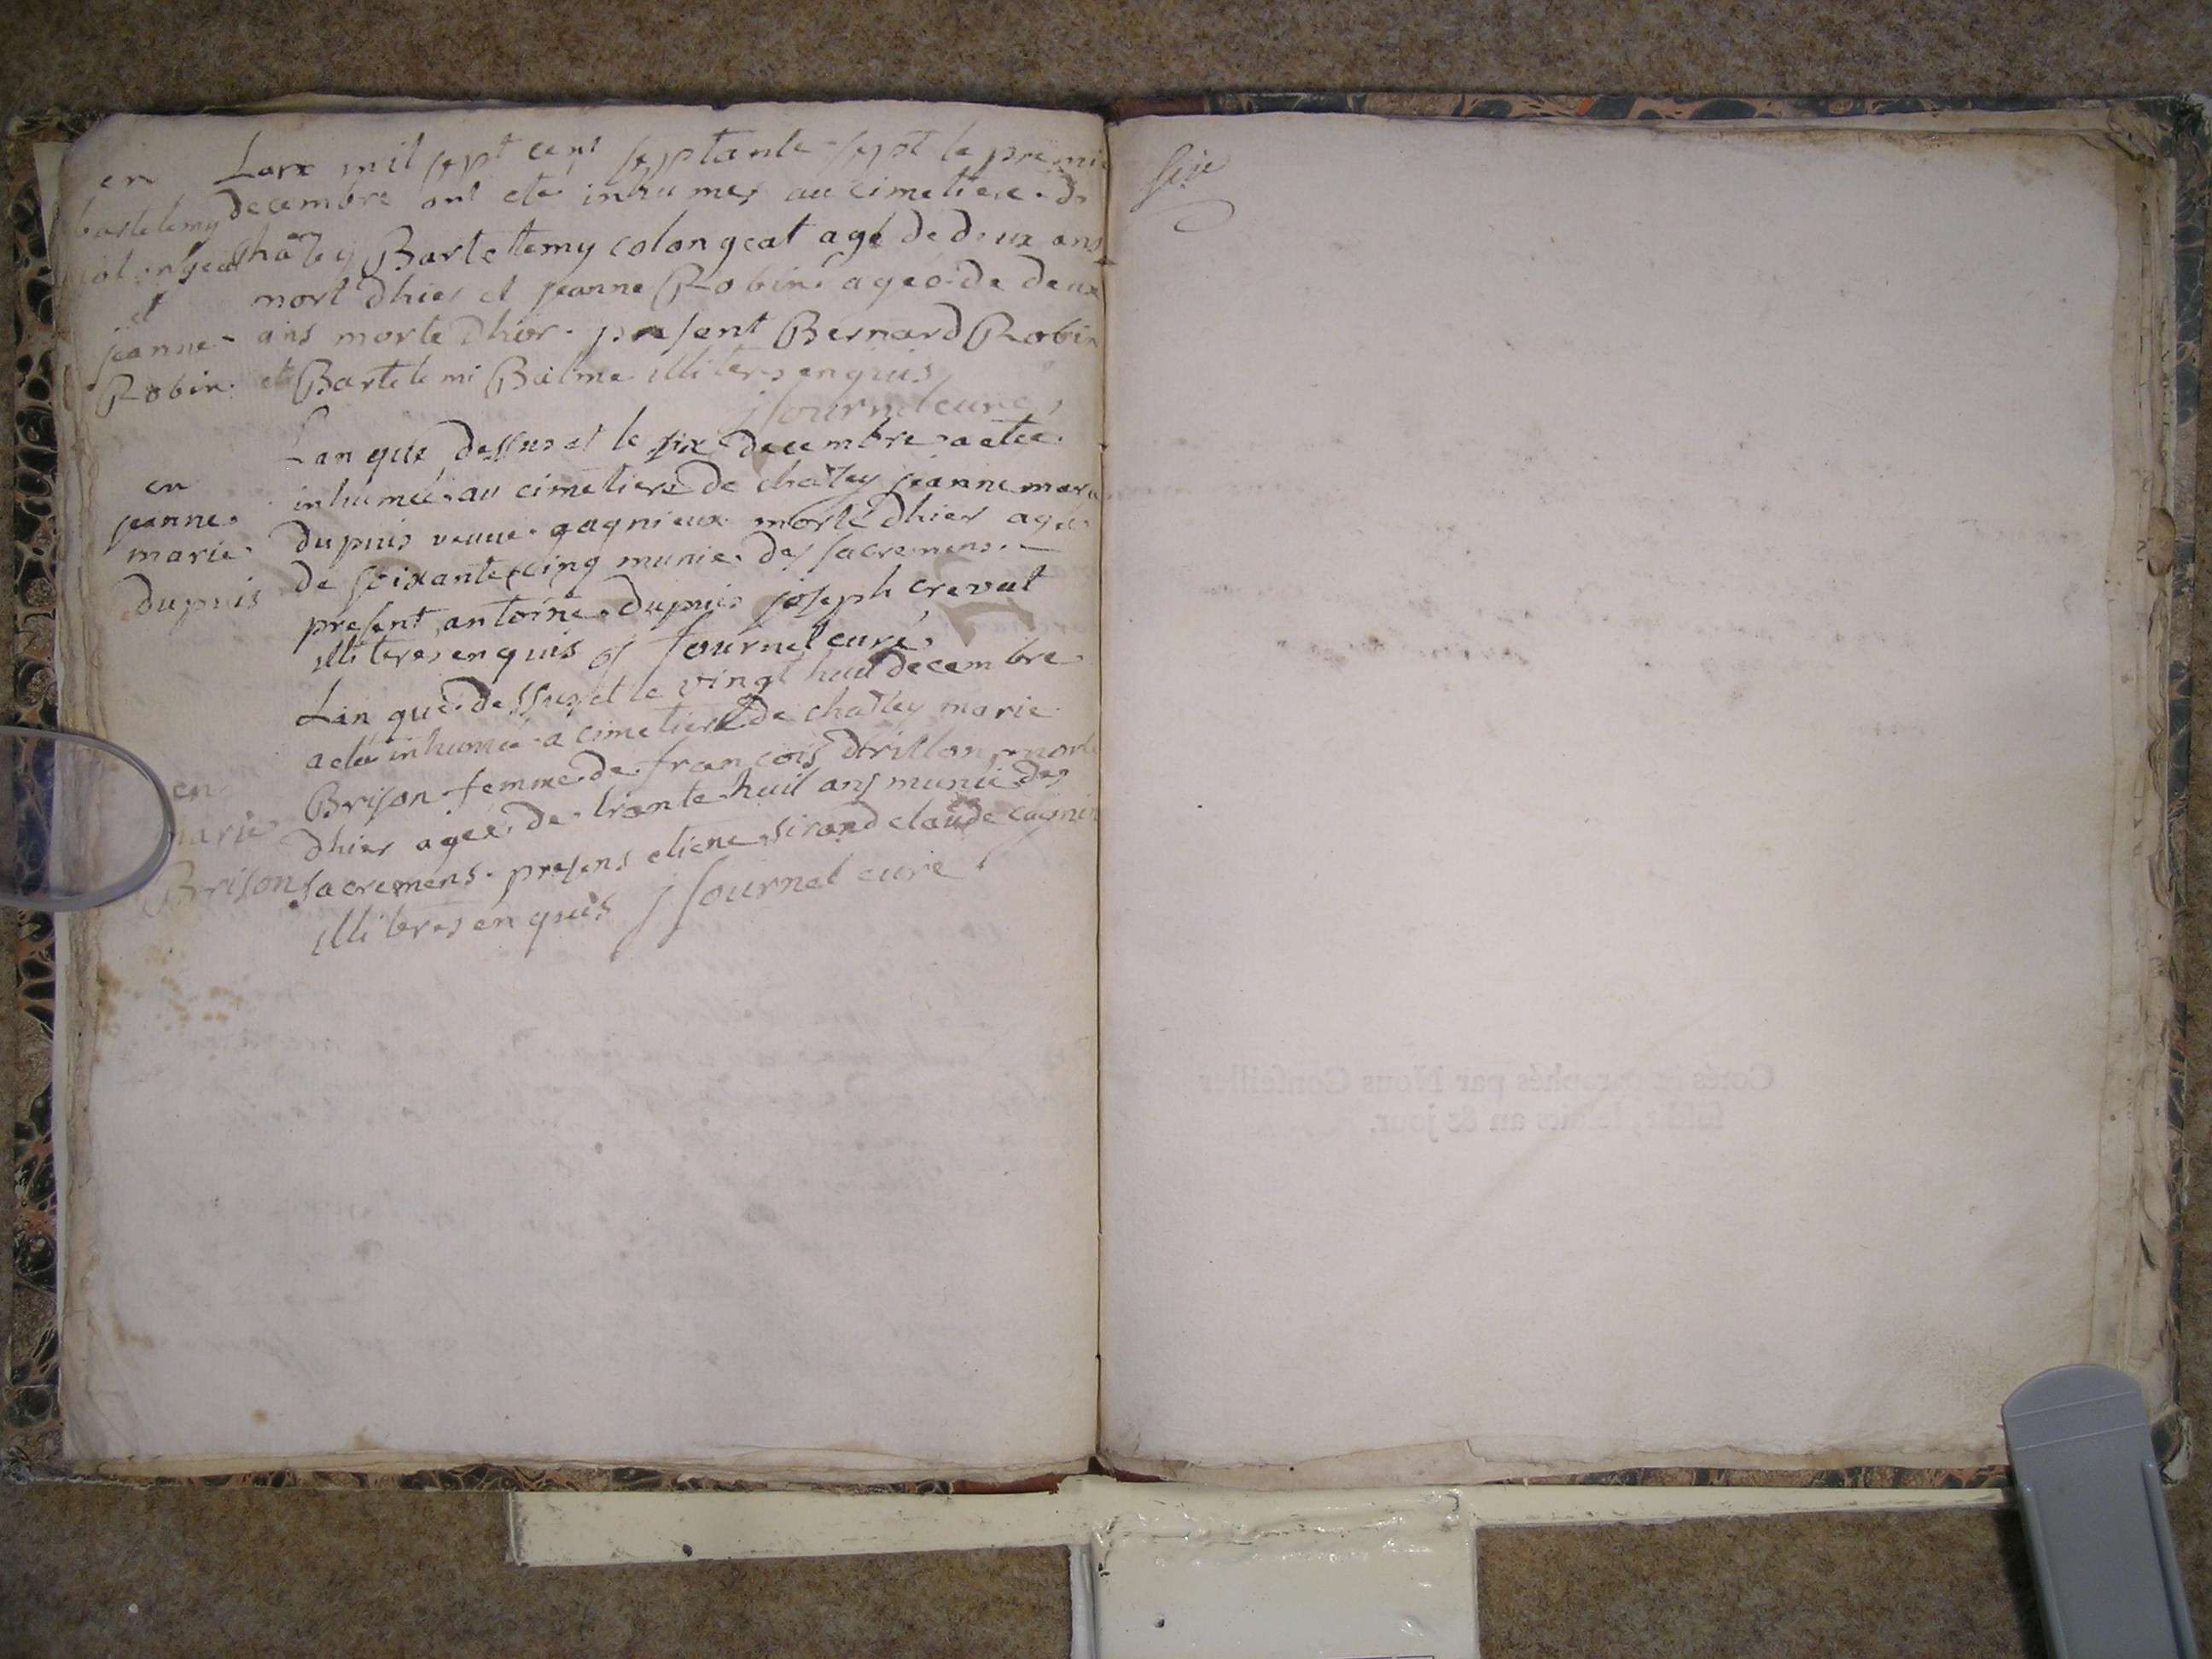 en
bartelemy
colongeat
et
jeanne
Robin
Lan mil sept cent septante sept le premie
decembre ont ete inhumes au cimetiere de
chatey Bartelemy colongeat agé de deux ans
mort dhier et jeanne Robin ageé de deux
ans morte dhier present Bernard Robin
et Bartelemi Balme illiteres enquis
j fournel curé
en
jeanne
marie
dupuis
Lan que dessus et le six decembre a eteé
inhumeé au cimetiere de chatey jeanne marie
dupuis veuve gagnieux morte dhier ageé
de soixante cinq munie des sacremens
present antoine dupuis joseph crevat
illiteres enquis j fournel curé
en
marie
Brison
Lan que dessus et le vingt huit decembre
a eté inhumeé a cimetiere de chatey marie
Brison femme de francois drillon morte
dhier ageé de trante huit ans munie des
sacremens presens etiene sirand claude
illiteres enquis j fournel curé
Cotés & paraphés par Nous Conseiller
lesdits an & jour.